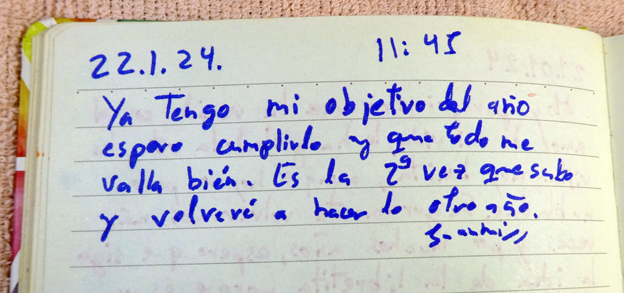 22.1.24. 11:45
Ya Tengo mi objetivo del año
espero cumplirlo y que todo me
valla bién. Es la 2ª vez que subo
y volveré a hacer lo otro año.